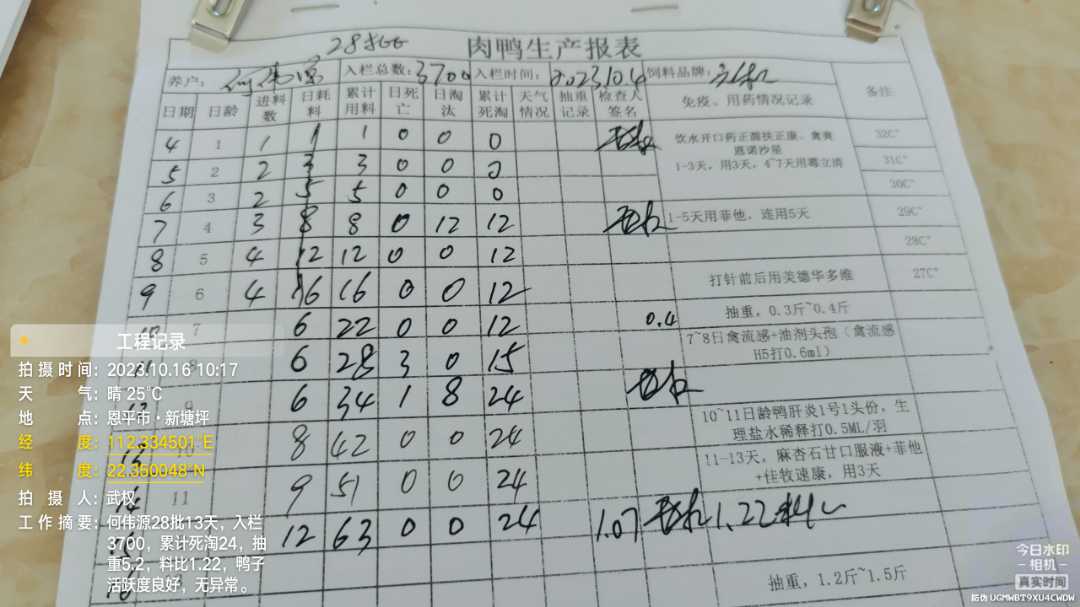 28批
肉鸭生产报表
养户: 何伟源 入栏总数: 3700 入栏时间: 2023.10.4 饲料品牌:
日期 日龄 进料数 日耗料 累计用料 日死亡 日淘汰 累计死淘 天气情况 抽重记录 检查人签名 免疫、用药情况记录 备注
4 1 1 1 1 0 0 0 饮水开口药正菌扶正康、禽爽 32C°
恩诺沙星
5 2 2 3 3 0 0 0 1-3天，用3天，4~7天用霉立清 31C°
6 3 2 5 5 0 0 0 30C°
7 4 3 8 8 0 12 12 1-5天用菲他，连用5天 29C°
8 5 4 12 12 0 0 12 28C°
9 6 4 16 16 0 0 12 打针前后用美德华多维 27C°
10 7 6 22 0 0 12 0.4 抽重，0.3斤~0.4斤
8 6 28 3 0 15 7~8日禽流感+油剂头孢（禽流感
H5打0.6ml）
9 6 34 1 8 24
10 8 42 0 0 24 10~11日龄鸭肝炎1号1头份，生
理盐水稀释打0.5ML/羽
14 11 9 51 0 0 24 11-13天，麻杏石甘口服液+菲他
+佳牧速康，用3天
12 63 0 0 24 1.07 1.22
抽重，1.2斤~1.5斤
工程记录
拍摄时间: 2023.10.16 10:17
天气: 晴 25℃
地点: 恩平市·新塘坪
经度: 112.334501°E
纬度: 22.350048°N
拍摄人: 武权
工作摘要: 何伟源28批13天，入栏
3700，累计死淘24，抽
重5.2，料比1.22，鸭子
活跃度良好，无异常。
今日水印
-相机-
真实时间
防伪 UGMWBT9XU4CWDW